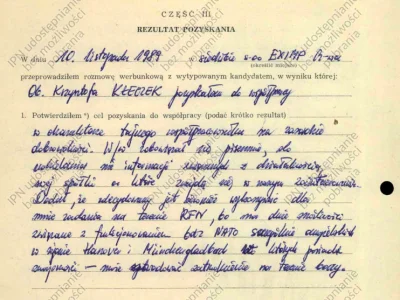 CZĘŚĆ III
REZULTAT POZYSKANIA
W dniu 10. listopada 1989 w siedzibie s-oo
(określić miejsce)
przeprowadziłem rozmowę werbunkową z wytypowanym kandydatem, w wyniku której:
Ob. Krzysztofa KŁECZEK pozyskałem do współpracy
1. Potwierdziłem *) cel pozyskania do współpracy (podać krótko rezultat)
w charakterze tajnego współpracownika na zasadzie
dobrowolności. W/w zobowiązał się pisemnie, do
udzielania mi informacji związanych z działalnością
swej spółki a które znajdą się w moim zainteresowaniu.
Dodał, że zdecydowany jest również wykonywać dla
mnie zadania na terenie RFN, bo ma duże możliwości
związane z funkcjonowaniem baz NATO szczególnie angielskich
w rejonie Hanover i Münchengladbach których posiada
znajomości – może na terenie bazy.
IPN udostępnianie
bez możliwości
kopiowania